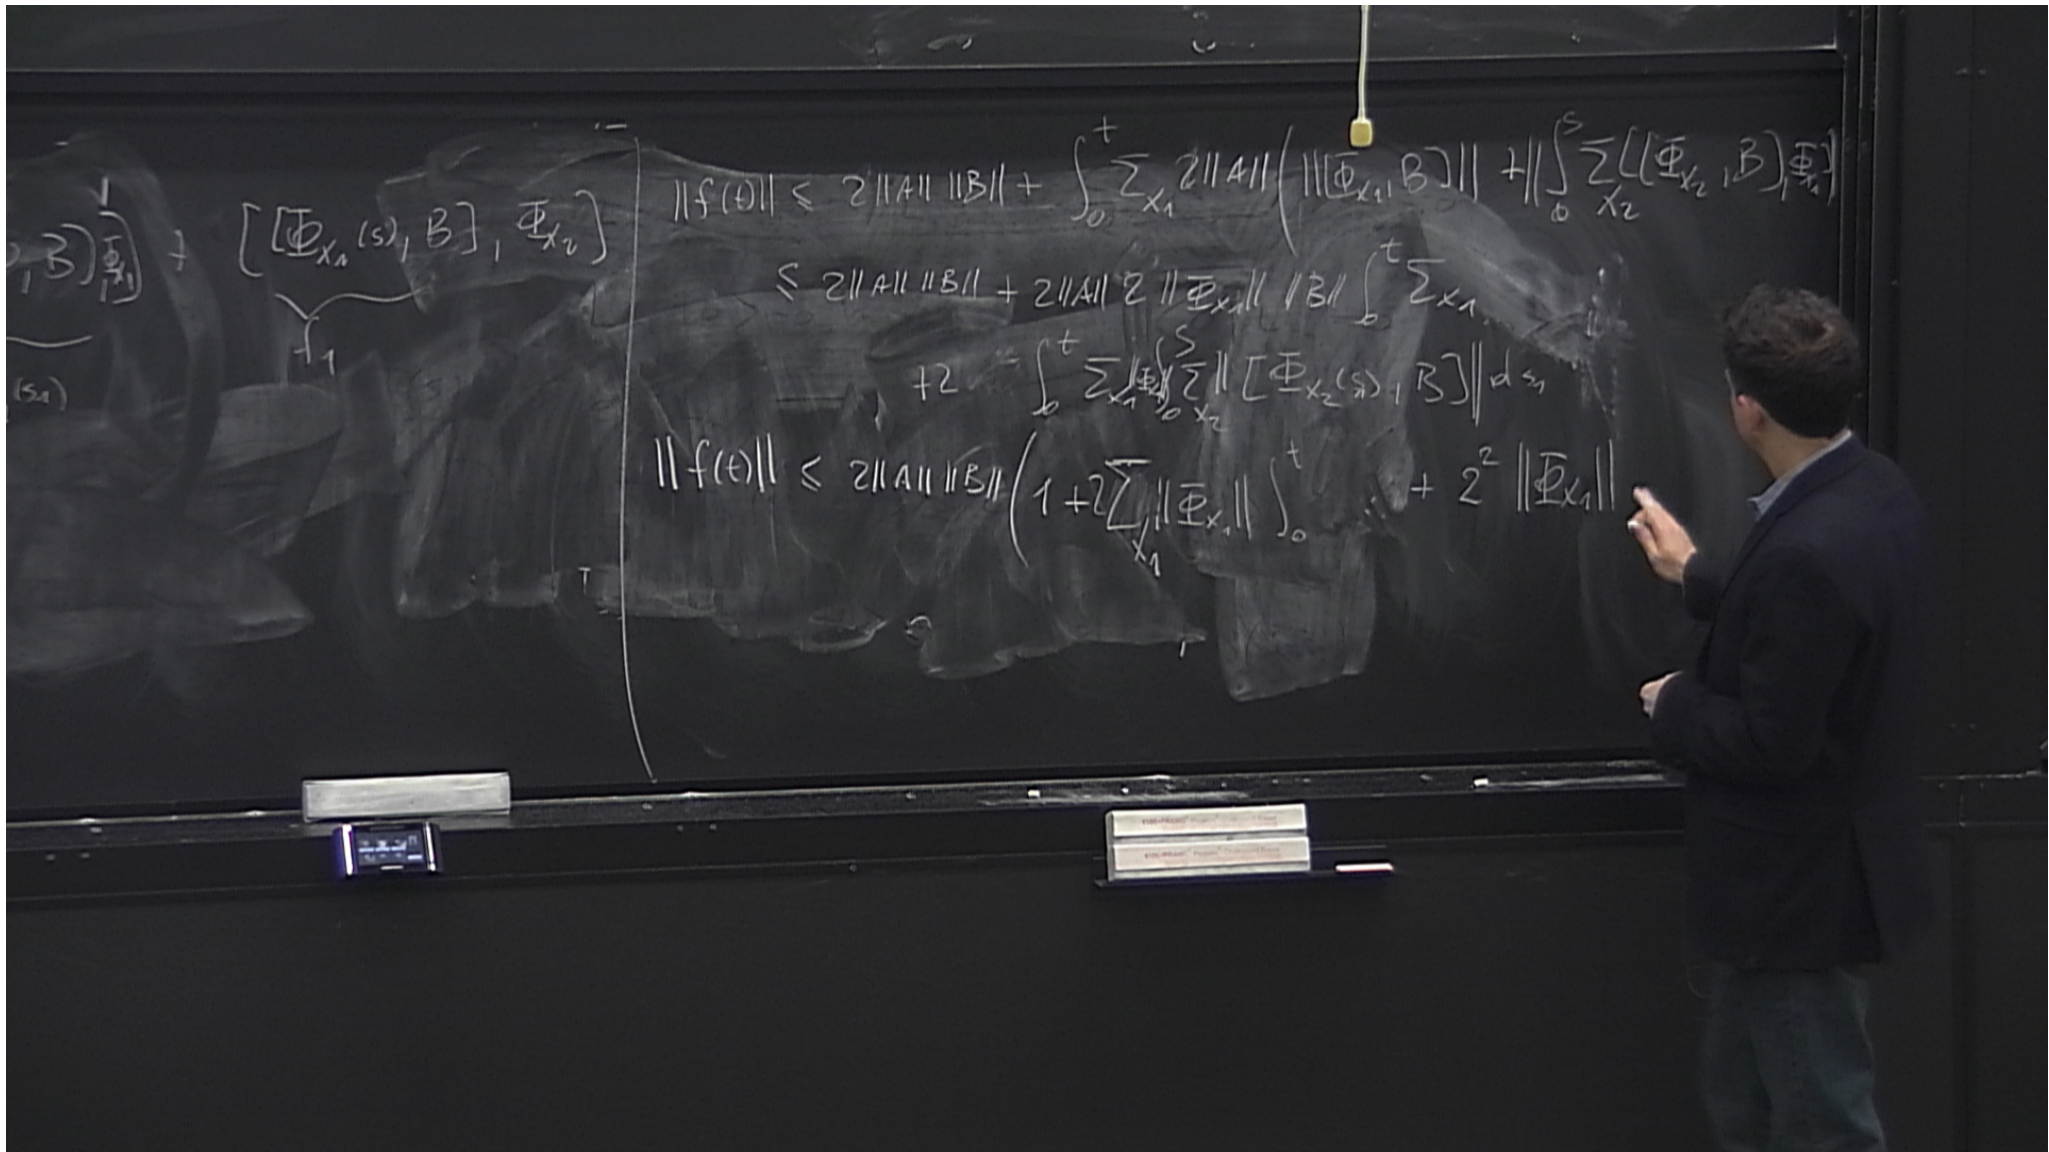 , B), Φ_{X_1}] + [[Φ_{X_1}(s), B], Φ_{X_2}]
f_1
(s_1)
||f(t)|| ≤ 2||A|| ||B|| + ∫_0^t Σ_{X_1} 2||A|| ( ||[Φ_{X_1}, B]|| + || ∫_0^s Σ_{X_2} [[Φ_{X_2}, B], Φ_{X_1}]
≤ 2||A|| ||B|| + 2||A|| 2 ||Φ_{X_1}|| ||B|| ∫_0^t Σ_{X_1}
+2 ∫_0^t Σ_{X_1} ||Φ_{X_1}|| ∫_0^s Σ_{X_2} || [Φ_{X_2}(s_1), B] || ds_1
||f(t)|| ≤ 2||A|| ||B|| ( 1 + 2 Σ_{X_1} ||Φ_{X_1}|| ∫_0^t + 2^2 ||Φ_{X_1}||